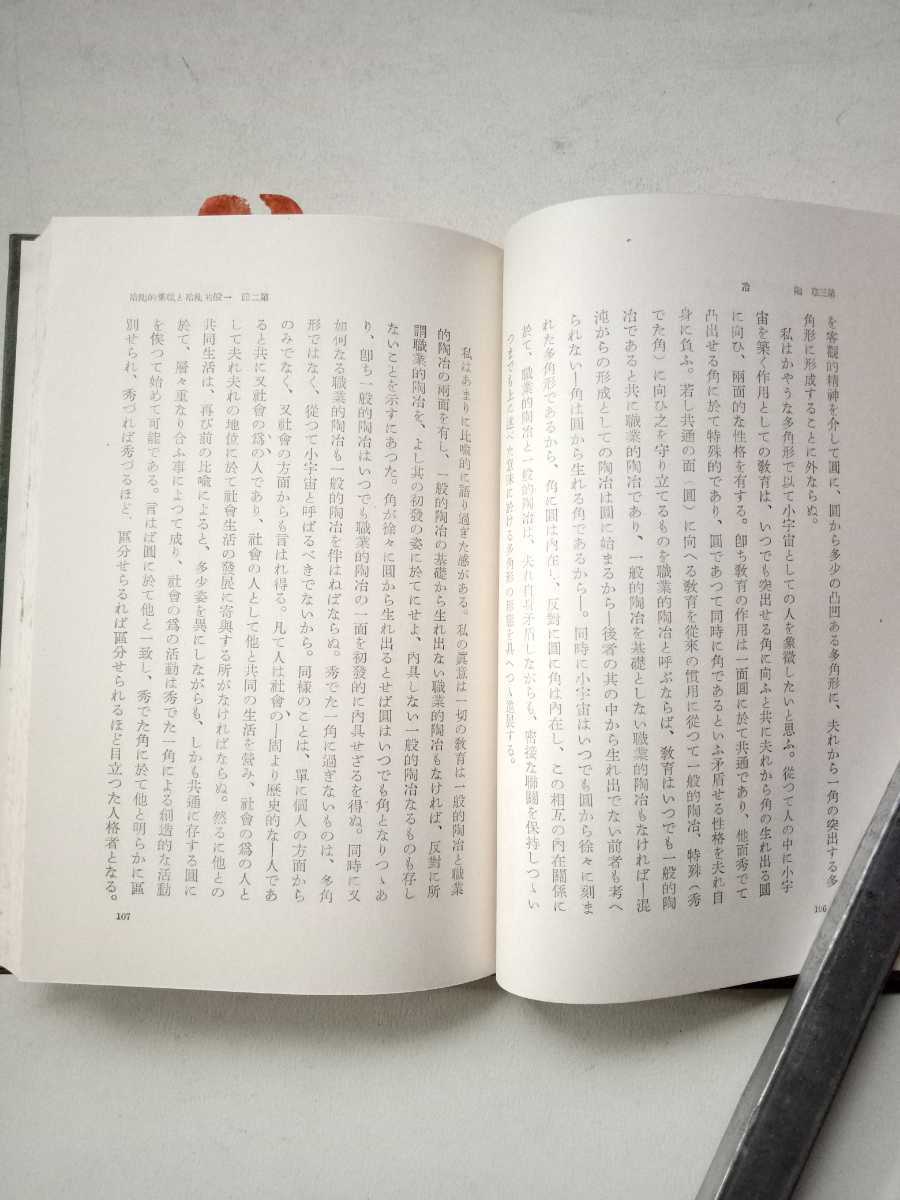 第三章 陶 冶
を客觀的精神を介して圓に、圓から多少の凸凹ある多角形に、夫れから一角の突出する多
角形に形成することに外ならぬ。
私はかやうな多角形で以て小宇宙としての人を象徴したいと思ふ。從つて人の中に小宇
宙を築く作用としての敎育は、いつでも突出せる角に向ふと共に夫れから角の生れ出る圓
に向ひ、兩面的な性格を有する。卽ち敎育の作用は一面圓に於て共通であり、他面秀でて
凸出せる角に於て特殊的であり、圓であつて同時に角であるといふ矛盾せる性格を夫れ自
身に負ふ。若し共通の面(圓)に向へる敎育を從來の慣用に從つて一般的陶冶、特殊(秀
でた角)に向ひ之を守り立てるものを職業的陶冶と呼ぶならば、敎育はいつでも一般的陶
冶であると共に職業的陶冶であり、一般的陶冶を基礎としない職業的陶冶もなければ―混
沌からの形成としての陶冶は圓に始まるから―後者の其の中から生れ出でない前者も考へ
られない―角は圓から生れる角であるから―。同時に小宇宙はいつでも圓から徐々に刻ま
れた多角形であるから、角に圓は內在し、反對に圓に角は內在し、この相互の內在關係に
於て、職業的陶冶と一般的陶冶は、夫れ自身矛盾しながらも、密接な聯關を保持しつゝい
つまでも上に述べた意味に於ける多角形の形態を具へつゝ進展する。
106
第二節 一般的陶冶と職業的陶冶
私はあまりに比喩的に語り過ぎた感がある。私の眞意は一切の敎育は一般的陶冶と職業
的陶冶の兩面を有し、一般的陶冶の基礎から生れ出ない職業的陶冶もなければ、反對に所
謂職業的陶冶を、よし其の初發の姿に於てにせよ、內具しない一般的陶冶なるものも存し
ないことを示すにあつた。角が徐々に圓から生れ出るとせば圓はいつでも角となりつゝあ
り、卽ち一般的陶冶はいつでも職業的陶冶の一面を初發的に內具せざるを得ぬ。同時に又
如何なる職業的陶冶も一般的陶冶を伴はねばならぬ。秀でた一角に過ぎないものは、多角
形ではなく、從つて小宇宙と呼ばるべきでないから。同樣のことは、單に個人の方面から
のみでなく、又社會の方面からも言はれ得る。凡て人は社會の―固より歷史的な―人であ
ると共に又社會の爲の人であり、社會の人として他と共同の生活を營み、社會の爲の人と
して夫れ夫れの地位に於て社會生活の發展に寄與する所がなければならぬ。然るに他との
共同生活は、再び前の比喩によると、多少姿を異にしながらも、しかも共通に存する圓に
於て、層々重なり合ふ事によつて成り、社會の爲の活動は秀でた一角による創造的な活動
を俟つて始めて可能である。言はば圓に於て他と一致し、秀でた角に於て他と明らかに區
別せられ、秀づれば秀づるほど、區分せらるれば區分せられるほど目立つた人格者となる。
107